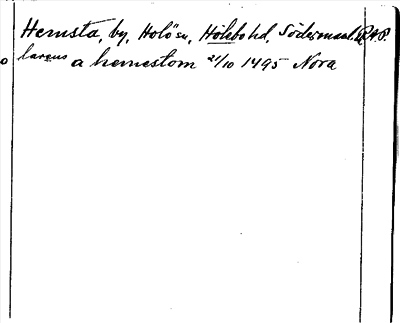 Hemsta, by, Holö sn, Hölebo hd, Södermanl. RAP.
o laręus a hemestom 21/10 1495 Nora